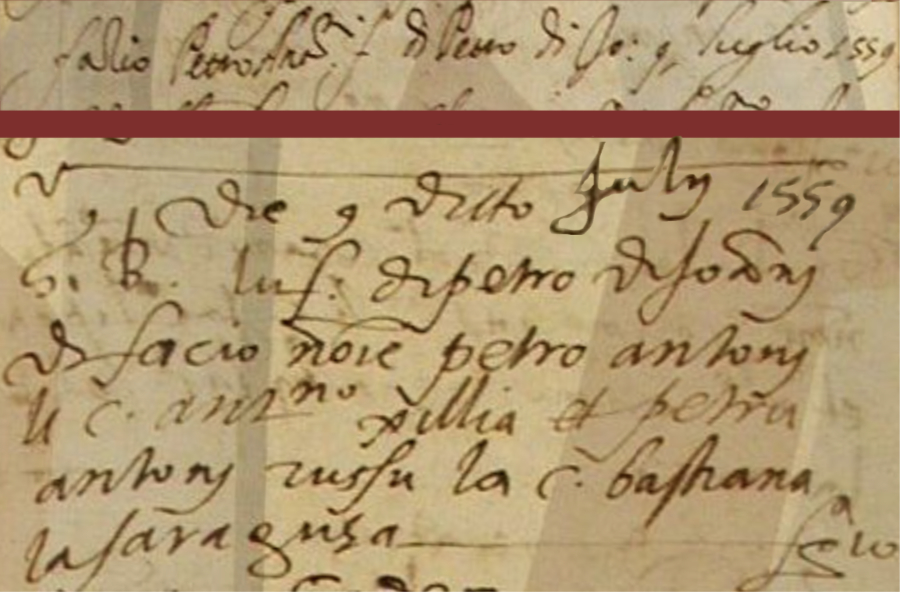 fazio Petro Ant.º f. di Petro di Jo: 9 luglio 1559
Die 9 ditto July 1559
h. B. lu f. di petro di Joanni
di facio noĩe petro antonj
li c. antno xillia et petru
antonj russu la c. bastiana
la saragusa